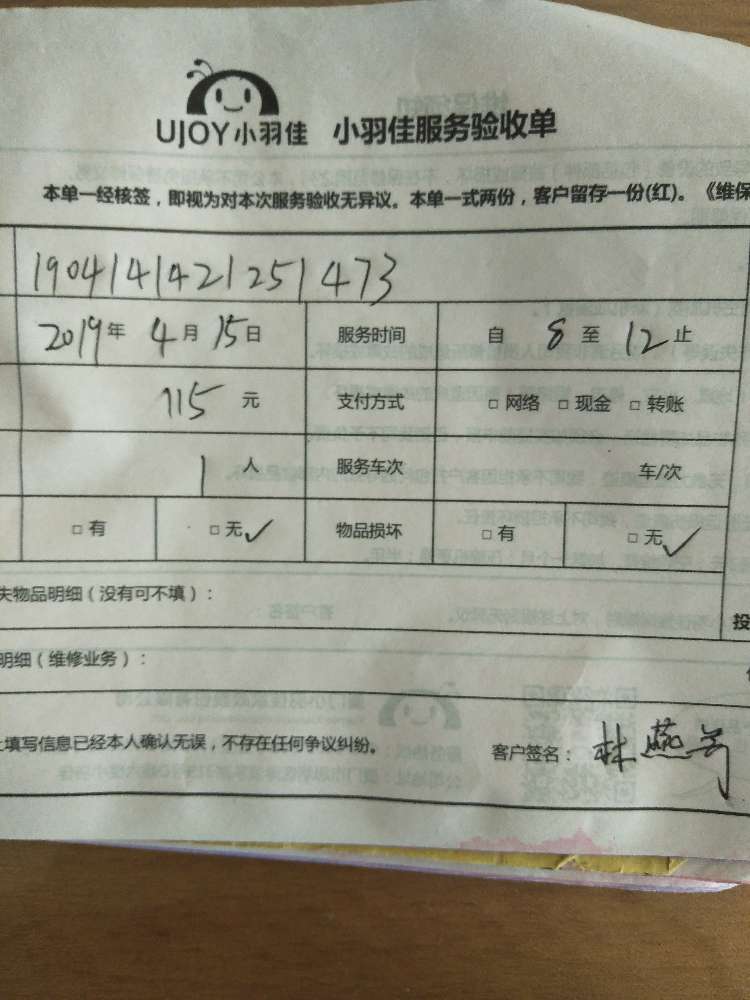 UJOY小羽佳 小羽佳服务验收单
本单一经核签，即视为对本次服务验收无异议。本单一式两份，客户留存一份(红)。《维保
1904141421251473
2019年 4月15日 服务时间 自 8 至 12 止
115 元 支付方式 □ 网络 □ 现金 □ 转账
1 人 服务车次 车/次
□ 有 □ 无✓ 物品损坏 □ 有 □ 无✓
失物品明细（没有可不填）：
投
明细（维修业务）：
上填写信息已经本人确认无误，不存在任何争议纠纷。 客户签名：林燕